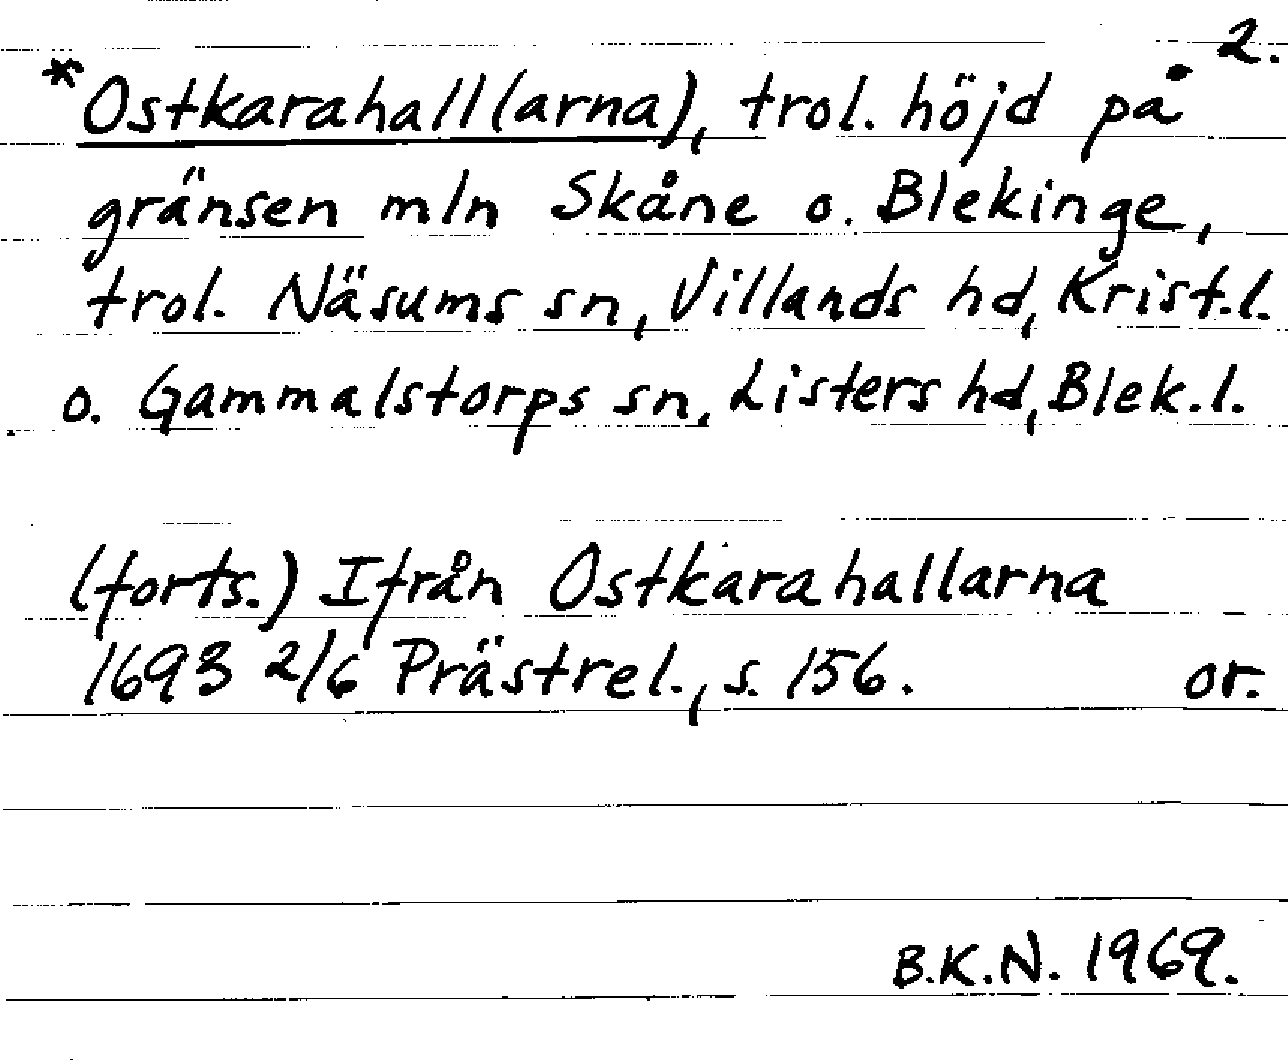 2.
*Ostkarahall(arna), trol. höjd på
gränsen mln Skåne o. Blekinge,
trol. Näsums sn, Villands hd, Krist.l.
o. Gammalstorps sn, Listers hd, Blek.l.
(forts.) Ifrån Ostkarahallarna
1693 2/6 Prästrel., s. 156. or.
B.K.N. 1969.